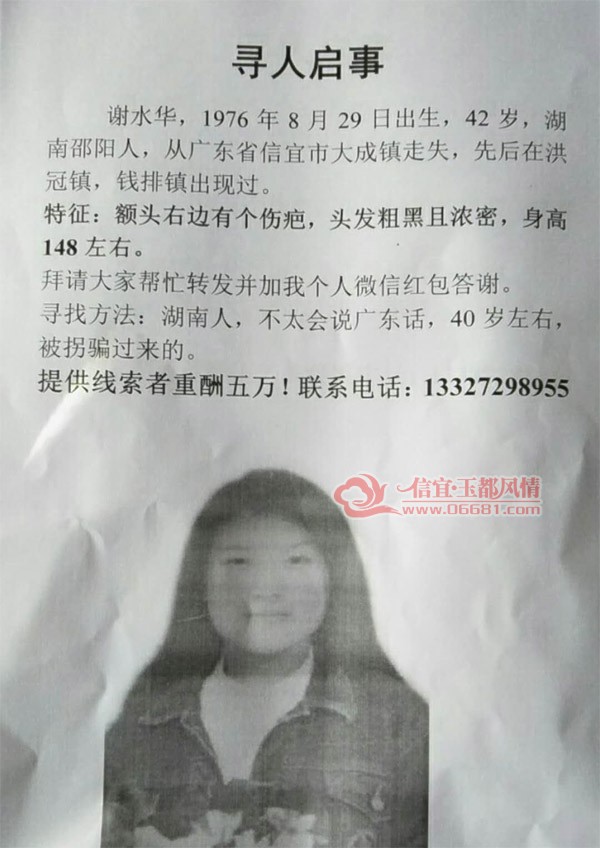 寻人启事
谢水华，1976 年 8 月 29 日出生，42 岁，湖
南邵阳人，从广东省信宜市大成镇走失，先后在洪
冠镇，钱排镇出现过。
特征：额头右边有个伤疤，头发粗黑且浓密，身高
148 左右。
拜请大家帮忙转发并加我个人微信红包答谢。
寻找方法：湖南人，不太会说广东话，40 岁左右，
被拐骗过来的。
提供线索者重酬五万！联系电话：13327298955
信宜·玉都风情
www.06681.com